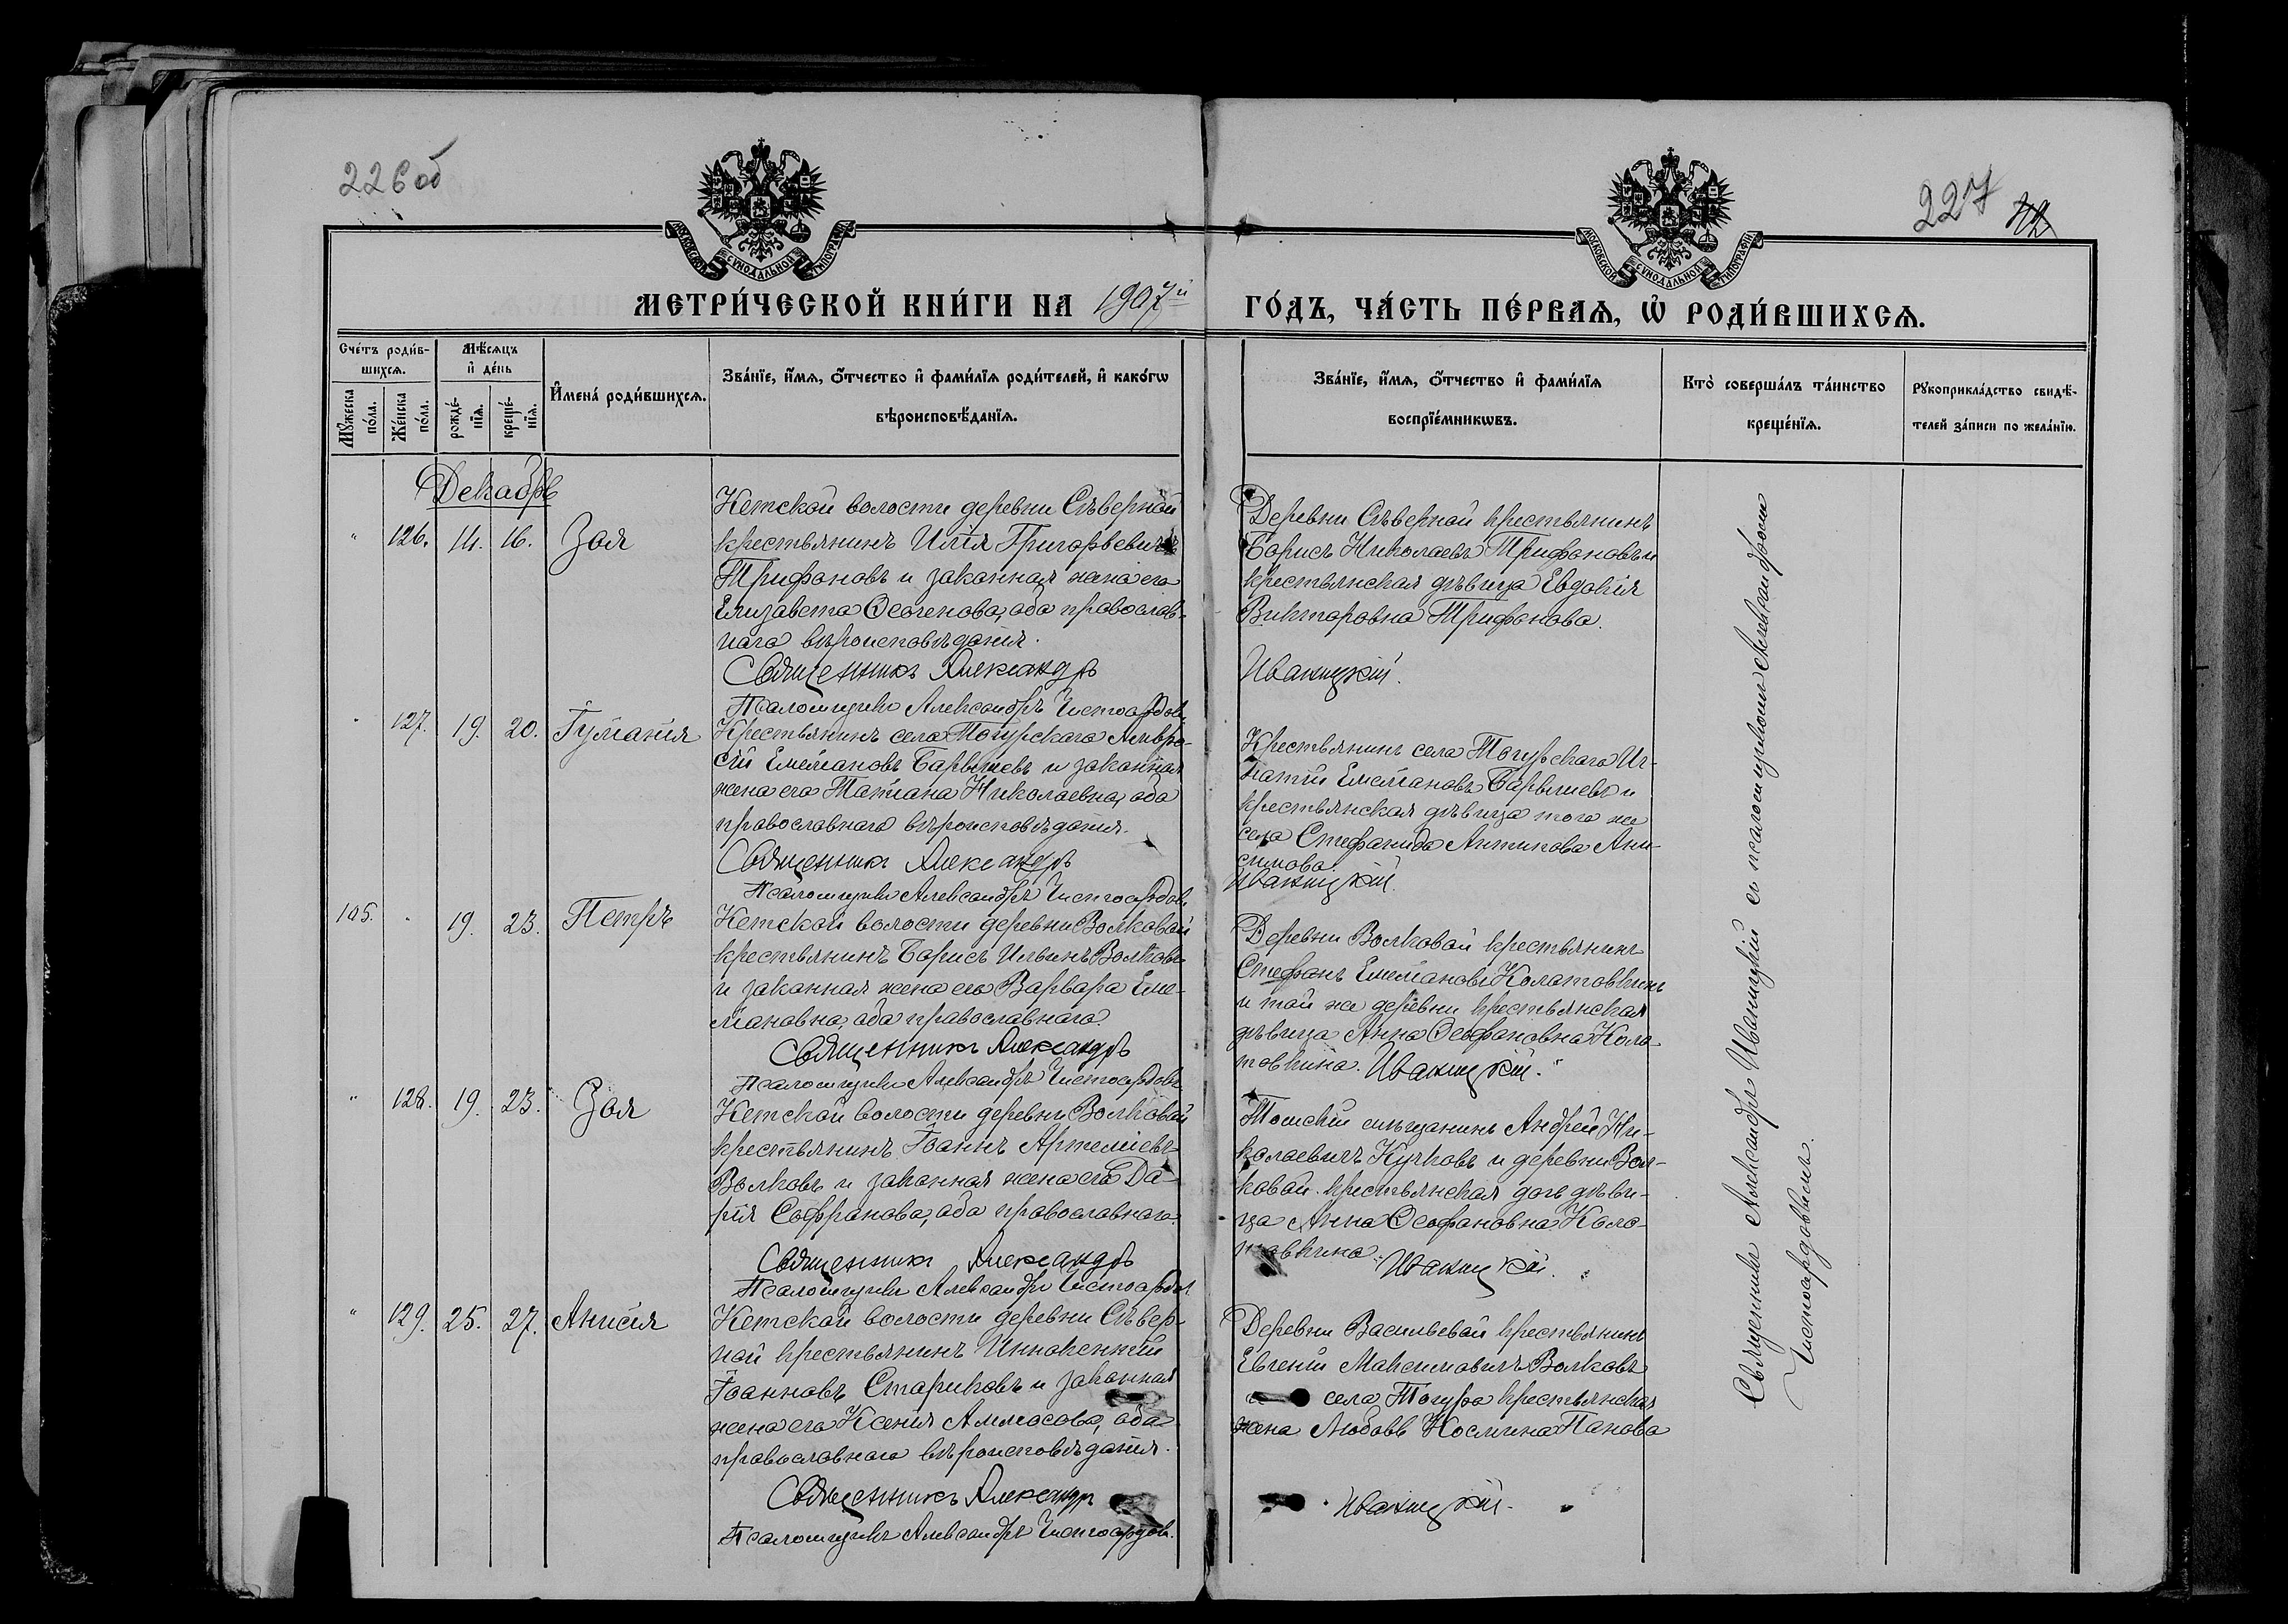 226 об
227
МОСКОВСКОЙ СѴНОДАЛЬНОЙ ТИПОГРАФІИ
МОСКОВСКОЙ СѴНОДАЛЬНОЙ ТИПОГРАФІИ
МЕТРИ́ЧЕСКОЙ КНИ́ГИ НА 1907й ГО́ДЪ, ЧА́СТЬ ПЕ́РВАѦ, Ѽ РОДИ́ВШИХСѦ.
Сче́тъ роди́в-
шихсѧ.
Мѣ́сѧцъ
и҆ де́нь
Мꙋ́жеска по́ла.
Же́нска по́ла.
рожде́-
нїѧ.
креще́-
нїѧ.
И҆мена̀ роди́вшихсѧ.
Зва́нїе, и҆́мѧ, ѻ҆́тчество и҆ фами́лїѧ роди́телей, и҆ како́гѡ
вѣроисповѣ́данїѧ.
Зва́нїе, и҆́мѧ, ѻ҆́тчество и҆ фами́лїѧ
воспрїе́мникѡвъ.
Кто̀ соверша́лъ та́инство
креще́нїѧ.
Рꙋкоприкла́дство свидѣ́-
телей за́писи по жела́нїю.
Декабрь
" 126. 14. 16. Зоя
Кетской волости деревни Сѣверной
крестьянинъ Илія Григорьевичъ
Трифоновъ и законная жена его
Елизавета Ѳеогенова, оба православ-
наго вѣроисповѣданія.
Священникъ Александръ
Псаломщикъ Александръ Чистосердовъ
Деревни Сѣверной крестьянинъ
Борисъ Николаевъ Трифоновъ и
крестьянская дѣвица Евдокія
Викторовна Трифонова.
Иваницкій.
" 127. 19. 20. Іуліанія
Крестьянинъ села Тогурскаго Амвро-
сій Емеліановъ Барышевъ и законная
жена его Татіана Николаевна, оба
православнаго вѣроисповѣданія.
Священникъ Александръ
Псаломщикъ Александръ Чистосердовъ
Крестьянинъ села Тогурскаго Иг-
натій Емеліановъ Барышевъ и
крестьянская дѣвица того же
села Стефанида Антипова Ани-
симова.
Иваницкій.
105. " 19. 23. Петръ
Кетской волости деревни Волковой
крестьянинъ Борисъ Ильинъ Волковъ
и законная жена его Варвара Еме-
ліановна, оба православнаго.
Священникъ Александръ
Псаломщикъ Александръ Чистосердовъ
Деревни Волковой крестьянинъ
Стефанъ Емеліановъ Колотовкинъ
и той же деревни крестьянская
дѣвица Анна Ѳеофановна Коло-
товкина. Иваницкій.
" 128. 19. 23. Зоя
Кетской волости деревни Волковой
крестьянинъ Іоаннъ Артеміевъ
Волковъ и законная жена его Да-
рія Софронова, оба православнаго.
Священникъ Александръ
Псаломщикъ Александръ Чистосердовъ
Томскій мѣщанинъ Андрей Ни-
колаевичъ Кучковъ и деревни Вол-
ковой крестьянская дочь дѣви-
ца Анна Ѳеофановна Коло-
товкина. Иваницкій.
" 129. 25. 27. Анисія
Кетской волости деревни Сѣвер-
ной крестьянинъ Иннокентій
Іоанновъ Стариковъ и законная
жена его Ксенія Аммосова, оба
православнаго вѣроисповѣданія.
Священникъ Александръ
Псаломщикъ Александръ Чистосердовъ.
Деревни Васильевой крестьянинъ
Евгеній Максимовичъ Волковъ
и села Тогура крестьянская
жена Любовь Космина Панова
Иваницкій.
Священникъ Александръ Иваницкій съ псаломщикомъ Александромъ
Чистосердовымъ.